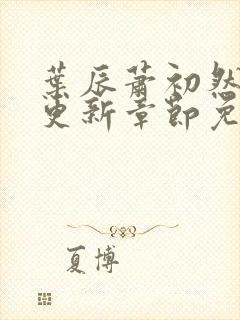 葉辰蕭初然
更新章節免
夏博